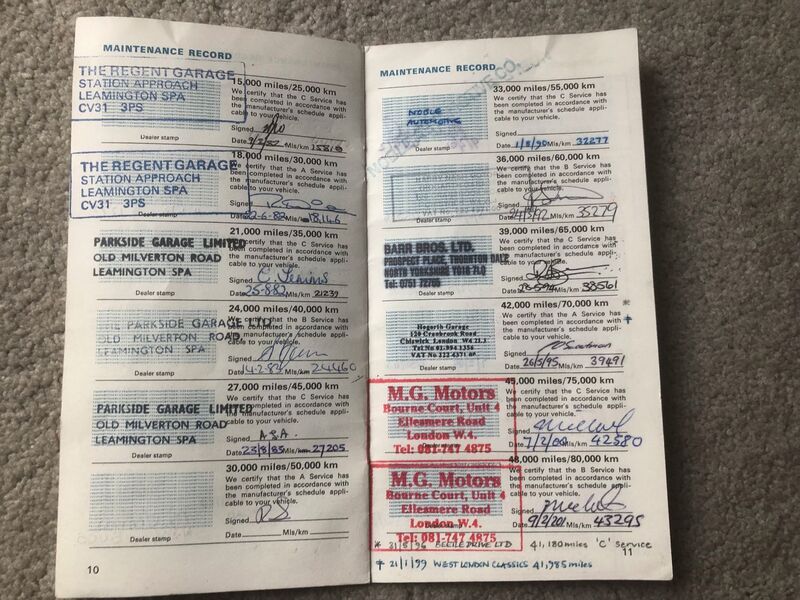 MAINTENANCE RECORD
THE REGENT GARAGE
STATION APPROACH
LEAMINGTON SPA
CV31 3PS
Dealer stamp
15,000 miles/25,000 km
We certify that the C Service has
been completed in accordance with
the manufacturer's schedule appli-
cable to your vehicle.
Signed
Date Mls/km
THE REGENT GARAGE
STATION APPROACH
LEAMINGTON SPA
CV31 3PS
Dealer stamp
18,000 miles/30,000 km
We certify that the A Service has
been completed in accordance with
the manufacturer's schedule appli-
cable to your vehicle.
Signed
Date 22-6-82 Mls/km 18,146
PARKSIDE GARAGE LIMITED
OLD MILVERTON ROAD
LEAMINGTON SPA
Dealer stamp
21,000 miles/35,000 km
We certify that the C Service has
been completed in accordance with
the manufacturer's schedule appli-
cable to your vehicle.
Signed
Date 25-8-82 Mls/km 21239
THE PARKSIDE GARAGE LTD
OLD MILVERTON ROAD
LEAMINGTON SPA
Dealer stamp
24,000 miles/40,000 km
We certify that the B Service has
been completed in accordance with
the manufacturer's schedule appli-
cable to your vehicle.
Signed
Date Mls/km 24460
PARKSIDE GARAGE LIMITED
OLD MILVERTON ROAD
LEAMINGTON SPA
Dealer stamp
27,000 miles/45,000 km
We certify that the C Service has
been completed in accordance with
the manufacturer's schedule appli-
cable to your vehicle.
Signed A.S.A.
Date 23/8/83 Mls/km 27205
Dealer stamp
30,000 miles/50,000 km
We certify that the A Service has
been completed in accordance with
the manufacturer's schedule appli-
cable to your vehicle.
Signed
Date Mls/km
10
MAINTENANCE RECORD
NOBLE
AUTOMOTIVE
Dealer stamp
33,000 miles/55,000 km
We certify that the C Service has
been completed in accordance with
the manufacturer's schedule appli-
cable to your vehicle.
Signed
Date 1/8/90 Mls/km 32277
Dealer stamp
36,000 miles/60,000 km
We certify that the B Service has
been completed in accordance with
the manufacturer's schedule appli-
cable to your vehicle.
Signed
Date 24/3/92 Mls/km 35279
BARR BROS. LTD.
PROSPECT PLACE, THORNTON DALE
NORTH YORKSHIRE YO18 7LQ
Tel: 0751 72705
Dealer stamp
39,000 miles/65,000 km
We certify that the C Service has
been completed in accordance with
the manufacturer's schedule appli-
cable to your vehicle.
Signed
Date Mls/km 38561
*
Hogarth Garage
120 Cranbrook Road
Chiswick London W4 2LJ
Tel No 01-994 1356
VAT No 222 4371
Dealer stamp
42,000 miles/70,000 km
We certify that the A Service has
been completed in accordance with
the manufacturer's schedule appli-
cable to your vehicle.
Signed
Date 26/5/95 Mls/km 39491
†
M.G. Motors
Bourne Court, Unit 4
Ellesmere Road
London W.4.
Tel: 081-747 4875
45,000 miles/75,000 km
We certify that the C Service has
been completed in accordance with
the manufacturer's schedule appli-
cable to your vehicle.
Signed
Date 7/2/00 Mls/km 42580
M.G. Motors
Bourne Court, Unit 4
Ellesmere Road
London W.4.
Tel: 081-747 4875
48,000 miles/80,000 km
We certify that the B Service has
been completed in accordance with
the manufacturer's schedule appli-
cable to your vehicle.
Signed
Date 9/2/201 Mls/km 43295
* 31/5/96 DRIVE LTD 41,180 miles 'C' Service
11
† 21/1/99 WEST LONDON CLASSICS 41,985 miles